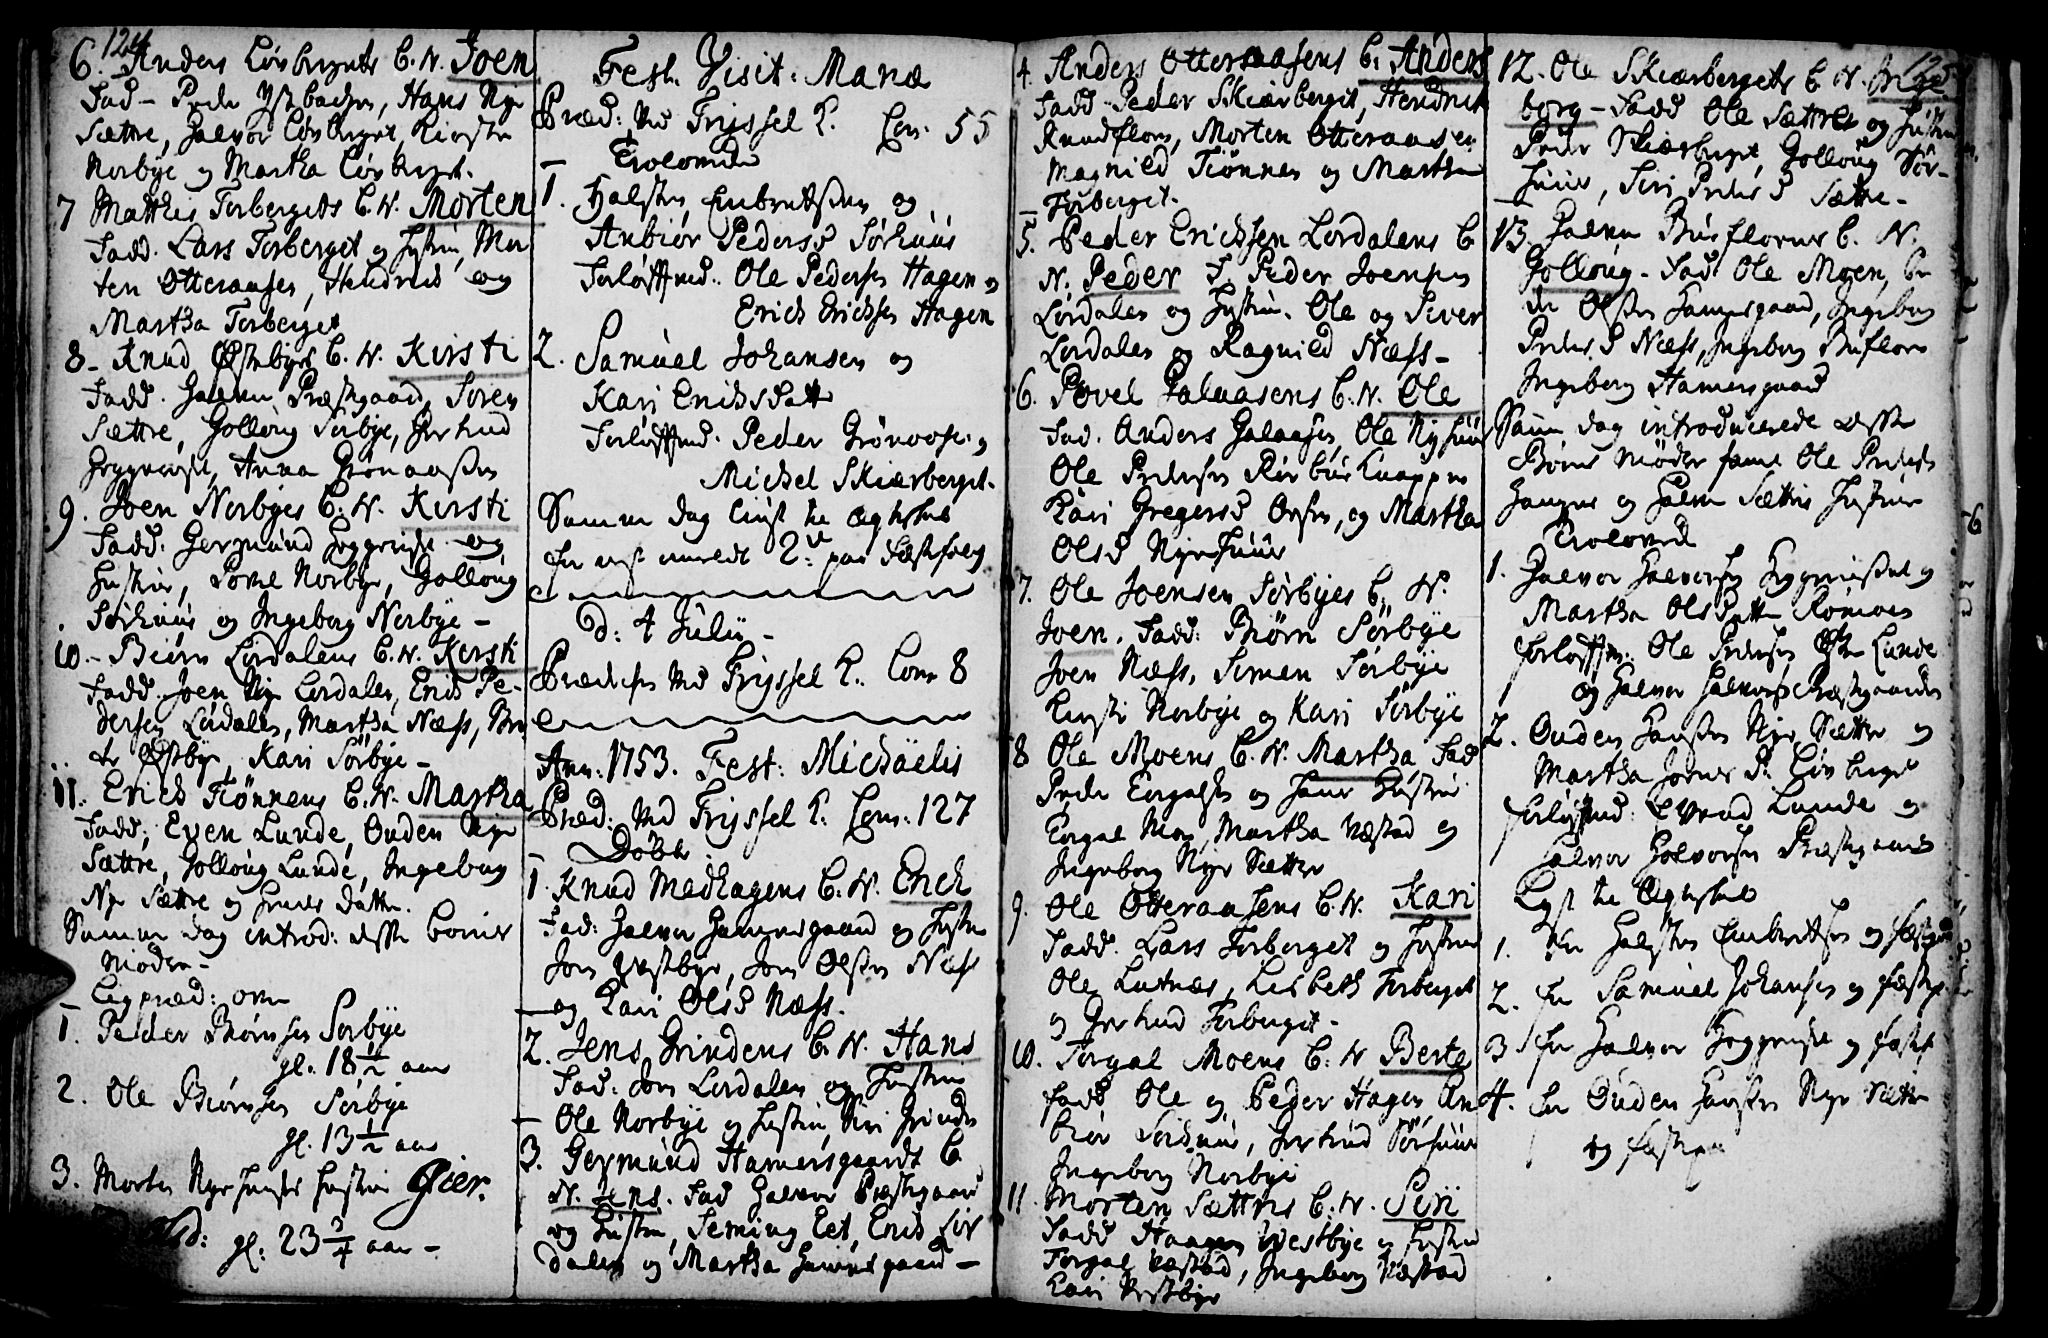 124
6. Anders Løvbergets B. N. Joen
Fad - Peder Østbaches, Hans Nye
Sættre, Halvor Løvberget, Kirsten
Norbye og Martha Løvberget.
7 Matthis Torbergets B. N. Morten
Fadd. Lars Torberget og Hustru, Mor
ten Otteraasen, Hendrich og
Martha Torberget
8 - Knud Østbyes B. N. Kirsti
Fadd. Halvor Præstgaard, Soren
Sættre, Golloug Sørbye, Gertrud
Anna Grønaassen
9. Joen Norbyes B. N. Kirsti
Fadd. Germund og
Hustru, Povel Norbye, Gollou̇g
Sørhuus og Ingeborg Norbye -
10. - Biørn Lørdalens B. N. Kersti
Fadd. Joen Nye Lørdalen, Erich Pe-
dersen Lørdalen, Martha Næss,
Østbye, Kari Sørbye -
11. Erich Tiønnens B. N. Martha
Fadd; Even Lunde, Ouden Nye
Sættre, Golloug Lunde, Ingeborg
Nye Sættre og datter.
Samme dag introd: disse børns
Mødre -
Ligpræd: over
1. Peder Biørnsen Sørbye
gl. 18 1/2 aar
2. Ole Biørnsen Sørbye
gl. 13 1/2 aar
3. Morten Nye Hustru Gier.
gl: 23 3/4 aar -
Fest. Visit: Mariæ
Præd: ved Tryssel K. Com. 55
Trolovede
1. Halsten Embretsen og
Anbiør Pedersd Sørhuus
Forløffted: Ole Pedersen Hagen og
Erich Erichsen Hagen
2. Samuel Johansen og
Kari Erichsdatter
Forløffted. Peder Grønoose og
Michel Skiærberget.
Samme dag liust til ægteskab
for 2de par Fæstefolch
d: 4 Julii -
Prædichen ved Tryssel K. Com 8
Ann: 1753. Fest: Michaëlis
Præd: ved Tryssel K. Com: 127
Døbte
1. Knud Medhagens B. N. Erich
Fad: Halvor Hammersgaard og Hustru
Jon Østbye, Jon Olsen Næss
og Kari Olsd Næss.
2. Jens Grindens B. N. Hans
Fad: Jon Lørdalen og Hustru
Ole Norbye og Hustru, Siri Grinden
3. Germund Hamersgaards B.
N. Jens. Fad Halvor Præstgaard
og Hustru, Seming Eet, Erich Lør
dalen og Martha Hamersgaard -
4. Anders Otteraasens B. Anders
Fadd. Peder Skiærberget, Hendrich
Knudsloen, Morten Otteraasen
Magnild Tiønnen og Martha
Torberget.
5. Peder Erichsen Lørdalens B
N. Peder F. Peder Joensen
Lørdalen og Hustru. Ole og Siver
Lørdalen og Ragnild Næss -
6. Povel Galaasens B. N. Ole
Fad. Anders Galaasen, Ole Nyhuus
Ole Pedersen
Kari Gregersd og Martha
Olsd Nyehuus
7. Ole Joensen Sørbyes B. N.
Joen. Fadd: Biørn Sørbye
Joen Næss, Simen Sørbye
Kirsti Norbye og Kari Sørbye
8 Ole Moens B. N. Martha Fad
Peder og Hans Hustru
Torgal Moen, Martha Næstad og
Ingeborg Nye Sættre
9. Ole Otteraasens B. N. Kari
Fadd. Lars Torberget og Hustru
Ole Lutnæs, Lisbeth Torberget
og Gertrud Torberget -
10. Torgal Moens B. N Berte
Fadd Ole og Peder Hagen, An
biør Sørhuus, Gertrud Sørhuus
Ingeborg Norbye
11. Morten Sættres B. N. Siri
Fadd Haagen Westbye og Hustru
Torgal Næstad, Ingeborg Næstad
Kari Westbye
125
12. Ole Skiærbergets B. N. Inge
borg - Fadd Ole Sættre og Hustru
Peder Skiærberget, Golloug Sør-
huus, Siri Pedersd Sættre -
13. Halvor Buflorns B. N.
Golloug. Fad Ole Moen,
Olsen Hamersgaard, Ingeborg
Pedersd Næss, Ingeborg Buflon
Ingeborg Hamersgaard
Samme dag introducerede disse
Børns Mødre samt Ole Pedersen
og Halvor Sættres Hustruer
Trolovede
1. Halvor Halvorsen og
Martha Olsdatter Rømoen
forløfftm: Ole Pedersen Lunde
og Halvor Halvorsen Præstgaarden
2. Ouden Hansen Nye Sættre og
Martha Løvberget
forløffted: Lunde og
Halvor Halvorsen Præstgaard
Lyst til Ægteskab
1. for Halsten Embretsen og fæstem
2. for Samuel Johansen og fæstep
3 for Halvor og fæstep
4. for Ouden Hansen Nye Sættre
og fæstepe